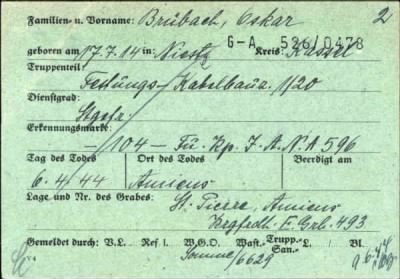 Familien- u. Vorname: Brübach, Oskar 2
geboren am 17.7.14 in: Nieste Kreis: Kassel
G-A 526/0478
Truppenteil:
Festungs-Kabelbaua. 1/20
Dienstgrad:
Stgefr.
Erkennungsmarke:
-104- Fu. Kp. J. A. N. A 596
Tag des Todes Ort des Todes Beerdigt am
6.4.44 Amiens
Lage und Nr. des Grabes: St. Pierre, Amiens
E. Grb. 493
Gemeldet durch: V.L. Ref I. W.G.O. Wast.- Trupp.- San.- L./ Bl.
Somme/6629